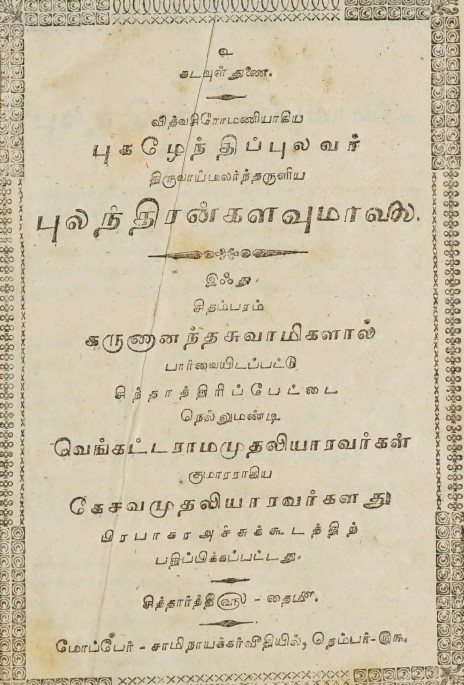 உ
கடவுள் துணை.
வித்வசிரோமணியாகிய
புகழேந்திப்புலவர்
திருவாய்மலர்ந்தருளிய
புலந்திரன்களவுமாலை.
இஃது
சிதம்பரம்
கருணானந்தசுவாமிகளால்
பார்வையிடப்பட்டு
சிந்தாத்திரிப்பேட்டை
நெல்லுமண்டி
வெங்கட்டராமமுதலியாரவர்கள்
குமாரராகிய
கேசவமுதலியாரவர்களது
பிரபாகரஅச்சுக்கூடத்திற்
பதிப்பிக்கப்பட்டது.
சித்தார்த்தி௵ - தை௴.
மோப்பேர் - சாமிநாயக்கர்வீதியில், நெம்பர்-